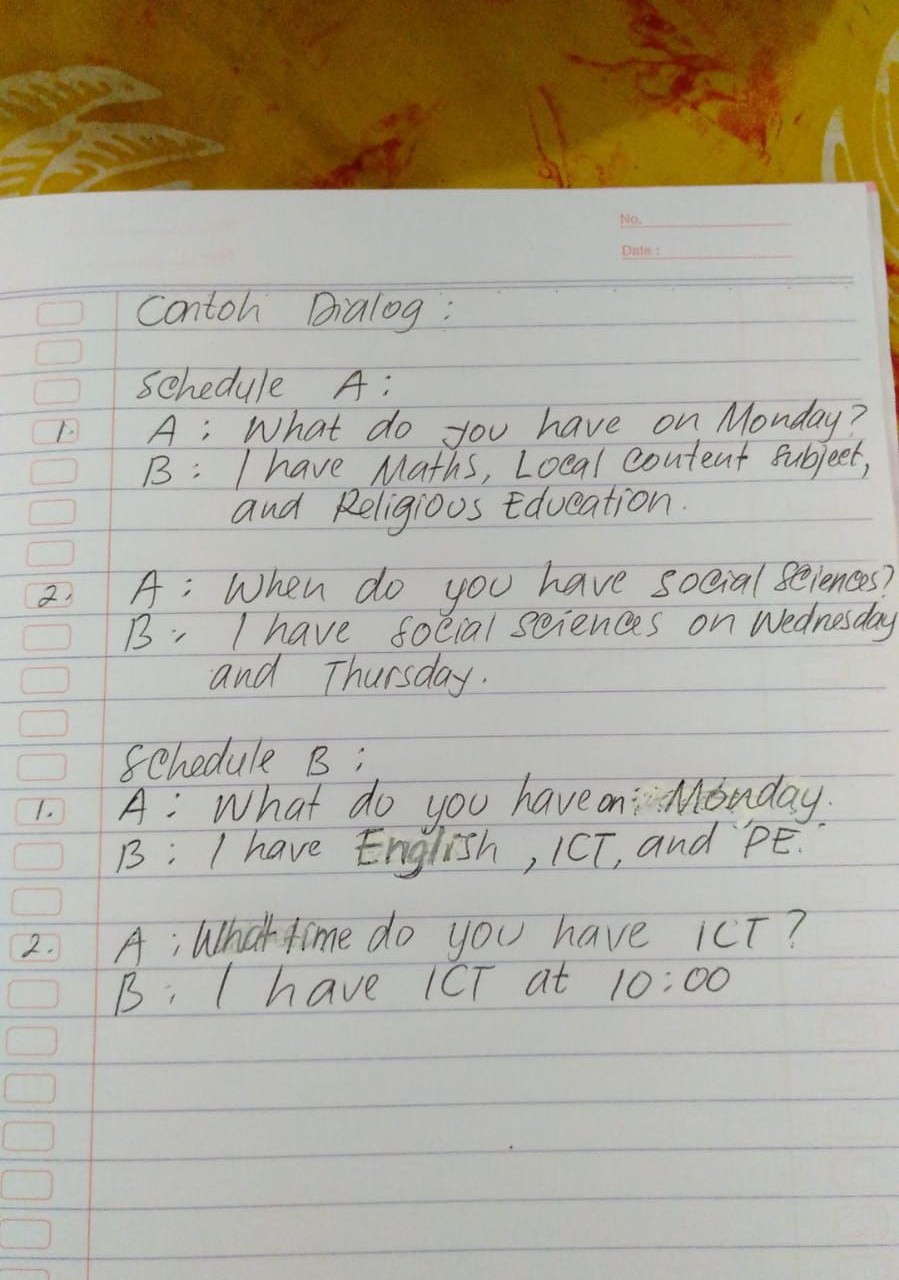 No.
Date :
Contoh Dialog :
Schedule A :
1. A : What do you have on Monday?
B : I have Maths, Local Content Subject,
and Religious Education.
2. A : When do you have social sciences?
B : I have social sciences on Wednesday
and Thursday.
Schedule B :
1. A : What do you have on : Monday.
B : I have English , ICT, and PE.
2. A : What time do you have ICT ?
B : I have ICT at 10:00